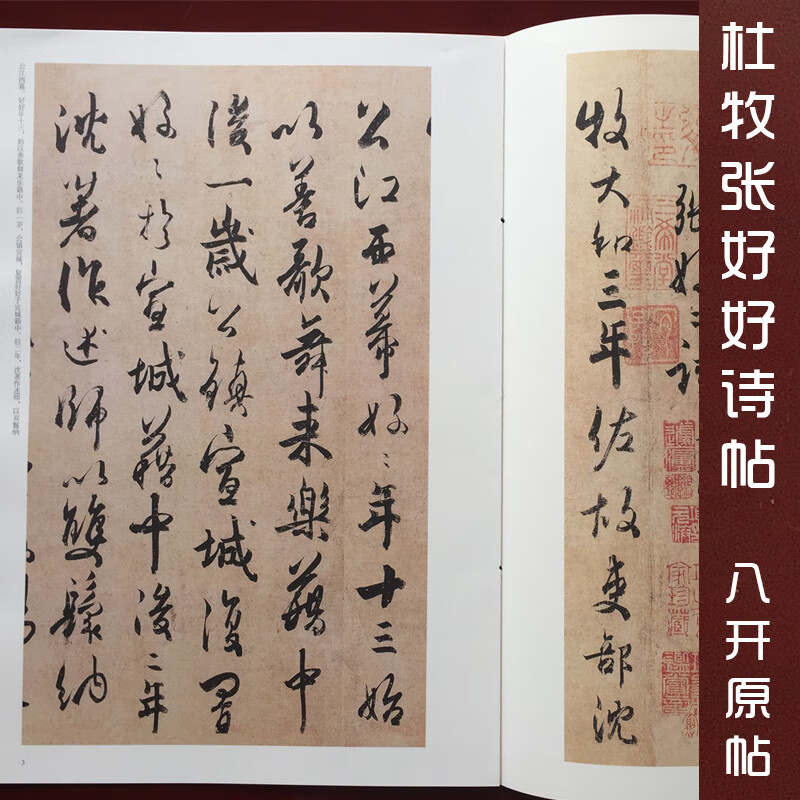 杜牧张好好诗帖 八开原帖
张好〻诗
牧大和三年佐故吏部沈
公江西幕好〻年十三始
以善歌舞来樂籍中
後一歲公鎮宣城復置
好〻於宣城籍中後二年
沈著作述師以雙鬟納
公江西幕。好好年十三，始以善歌舞来乐籍中。后一岁，公镇宣城，复置好好于宣城籍中。后二年，沈著作述师，以双鬟纳
3